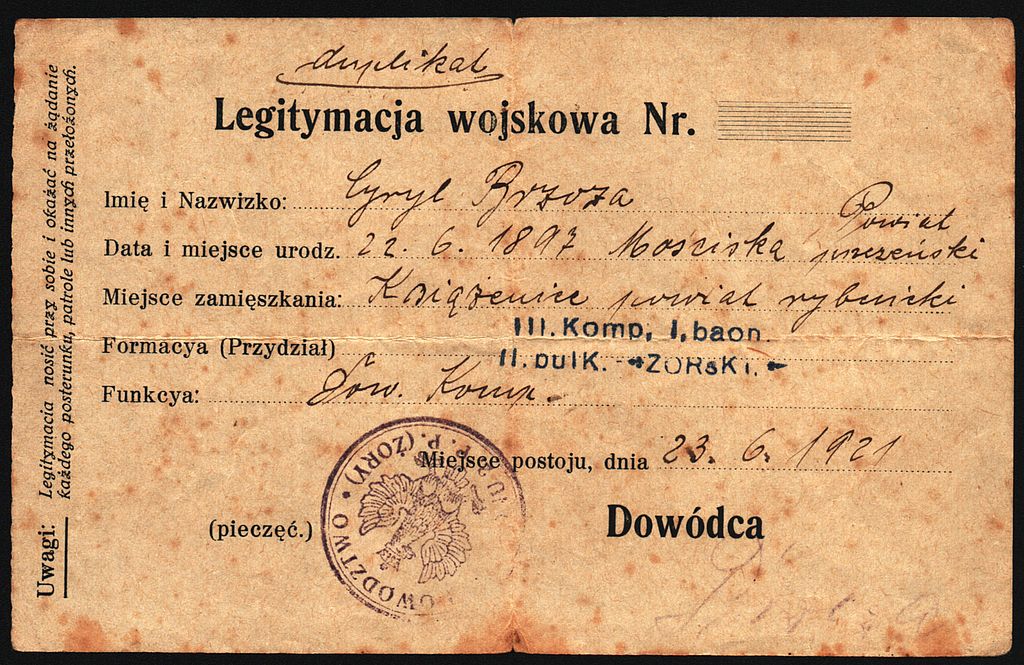 duplikat
Legitymacja wojskowa Nr.
Imię i Nazwizko: Cyryl Brzoza
Data i miejsce urodz. 22. 6. 1897 Mościska Powiat
pszczeński
Miejsce zamięszkania: Książenice powiat rybnicki
Formacya (Przydział) III. Komp, I, baon.
II. pulK. ZORSKI.
Funkcya: Dow. Komp.
Miejsce postoju, dnia 23. 6. 1921
(pieczęć.)
Dowódca
OWODZTWO P. P. (ŻORY)
Uwagi: Legitymacia nosić przy sobie i okażać na żądanie
każdego posterunku, patrole lub innych przełożonych.